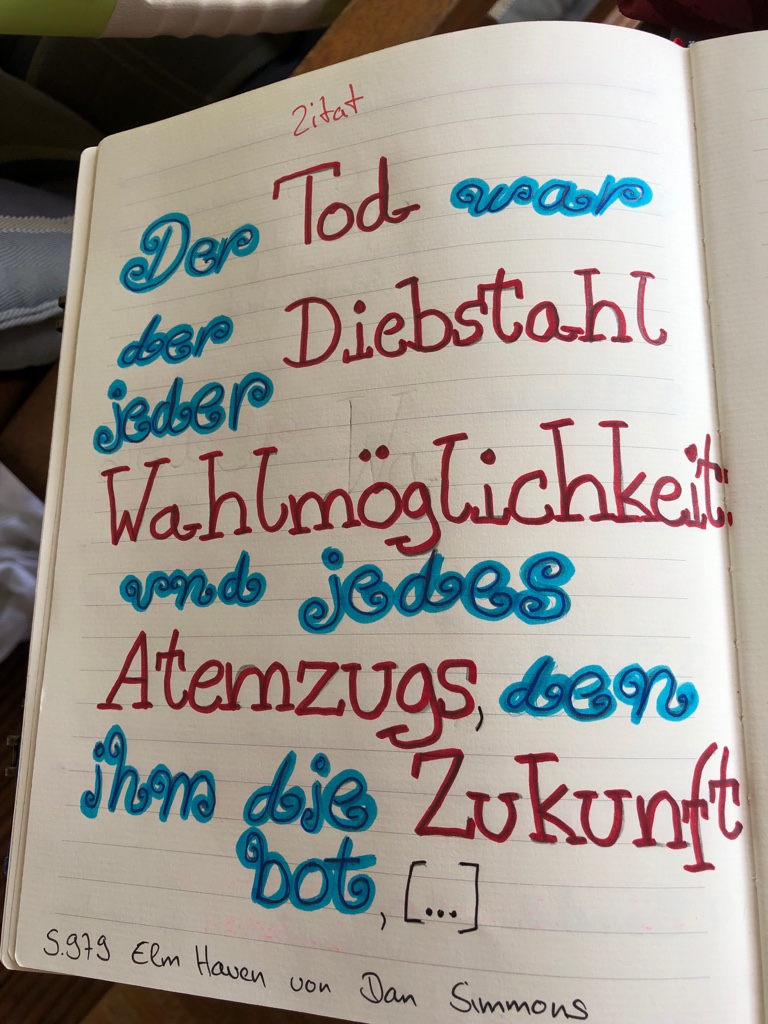 Zitat
Der Tod war
der Diebstahl
jeder
Wahlmöglichkeit
und jedes
Atemzugs, den
ihm die Zukunft
bot, [...]
S.979 Elm Haven von Dan Simmons